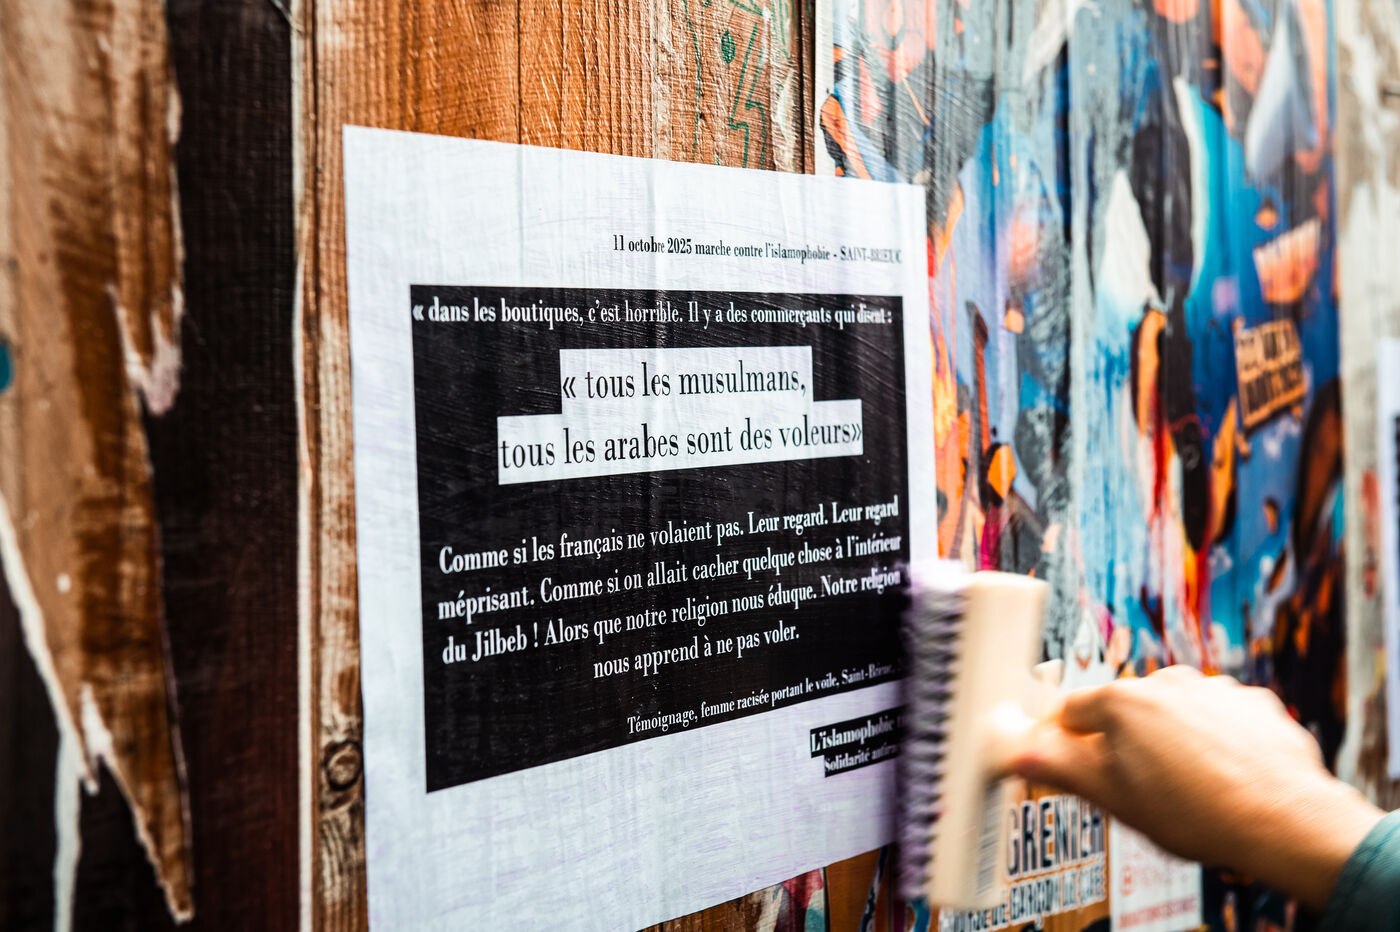 11 octobre 2025 marche contre l'islamophobie - SAINT-BRIEUC
« dans les boutiques, c'est horrible. Il y a des commerçants qui disent :
« tous les musulmans,
tous les arabes sont des voleurs»
Comme si les français ne volaient pas. Leur regard. Leur regard
méprisant. Comme si on allait cacher quelque chose à l'intérieur
du Jilbeb ! Alors que notre religion nous éduque. Notre religion
nous apprend à ne pas voler.
Témoignage, femme racisée portant le voile, Saint-Brieuc,
L'islamophobie
Solidarité
GRENIER
GARÇON